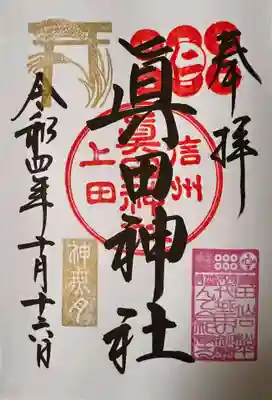 奉拝
眞田神社
信州
上田
眞田神社
令和四年十月十六日
神無月